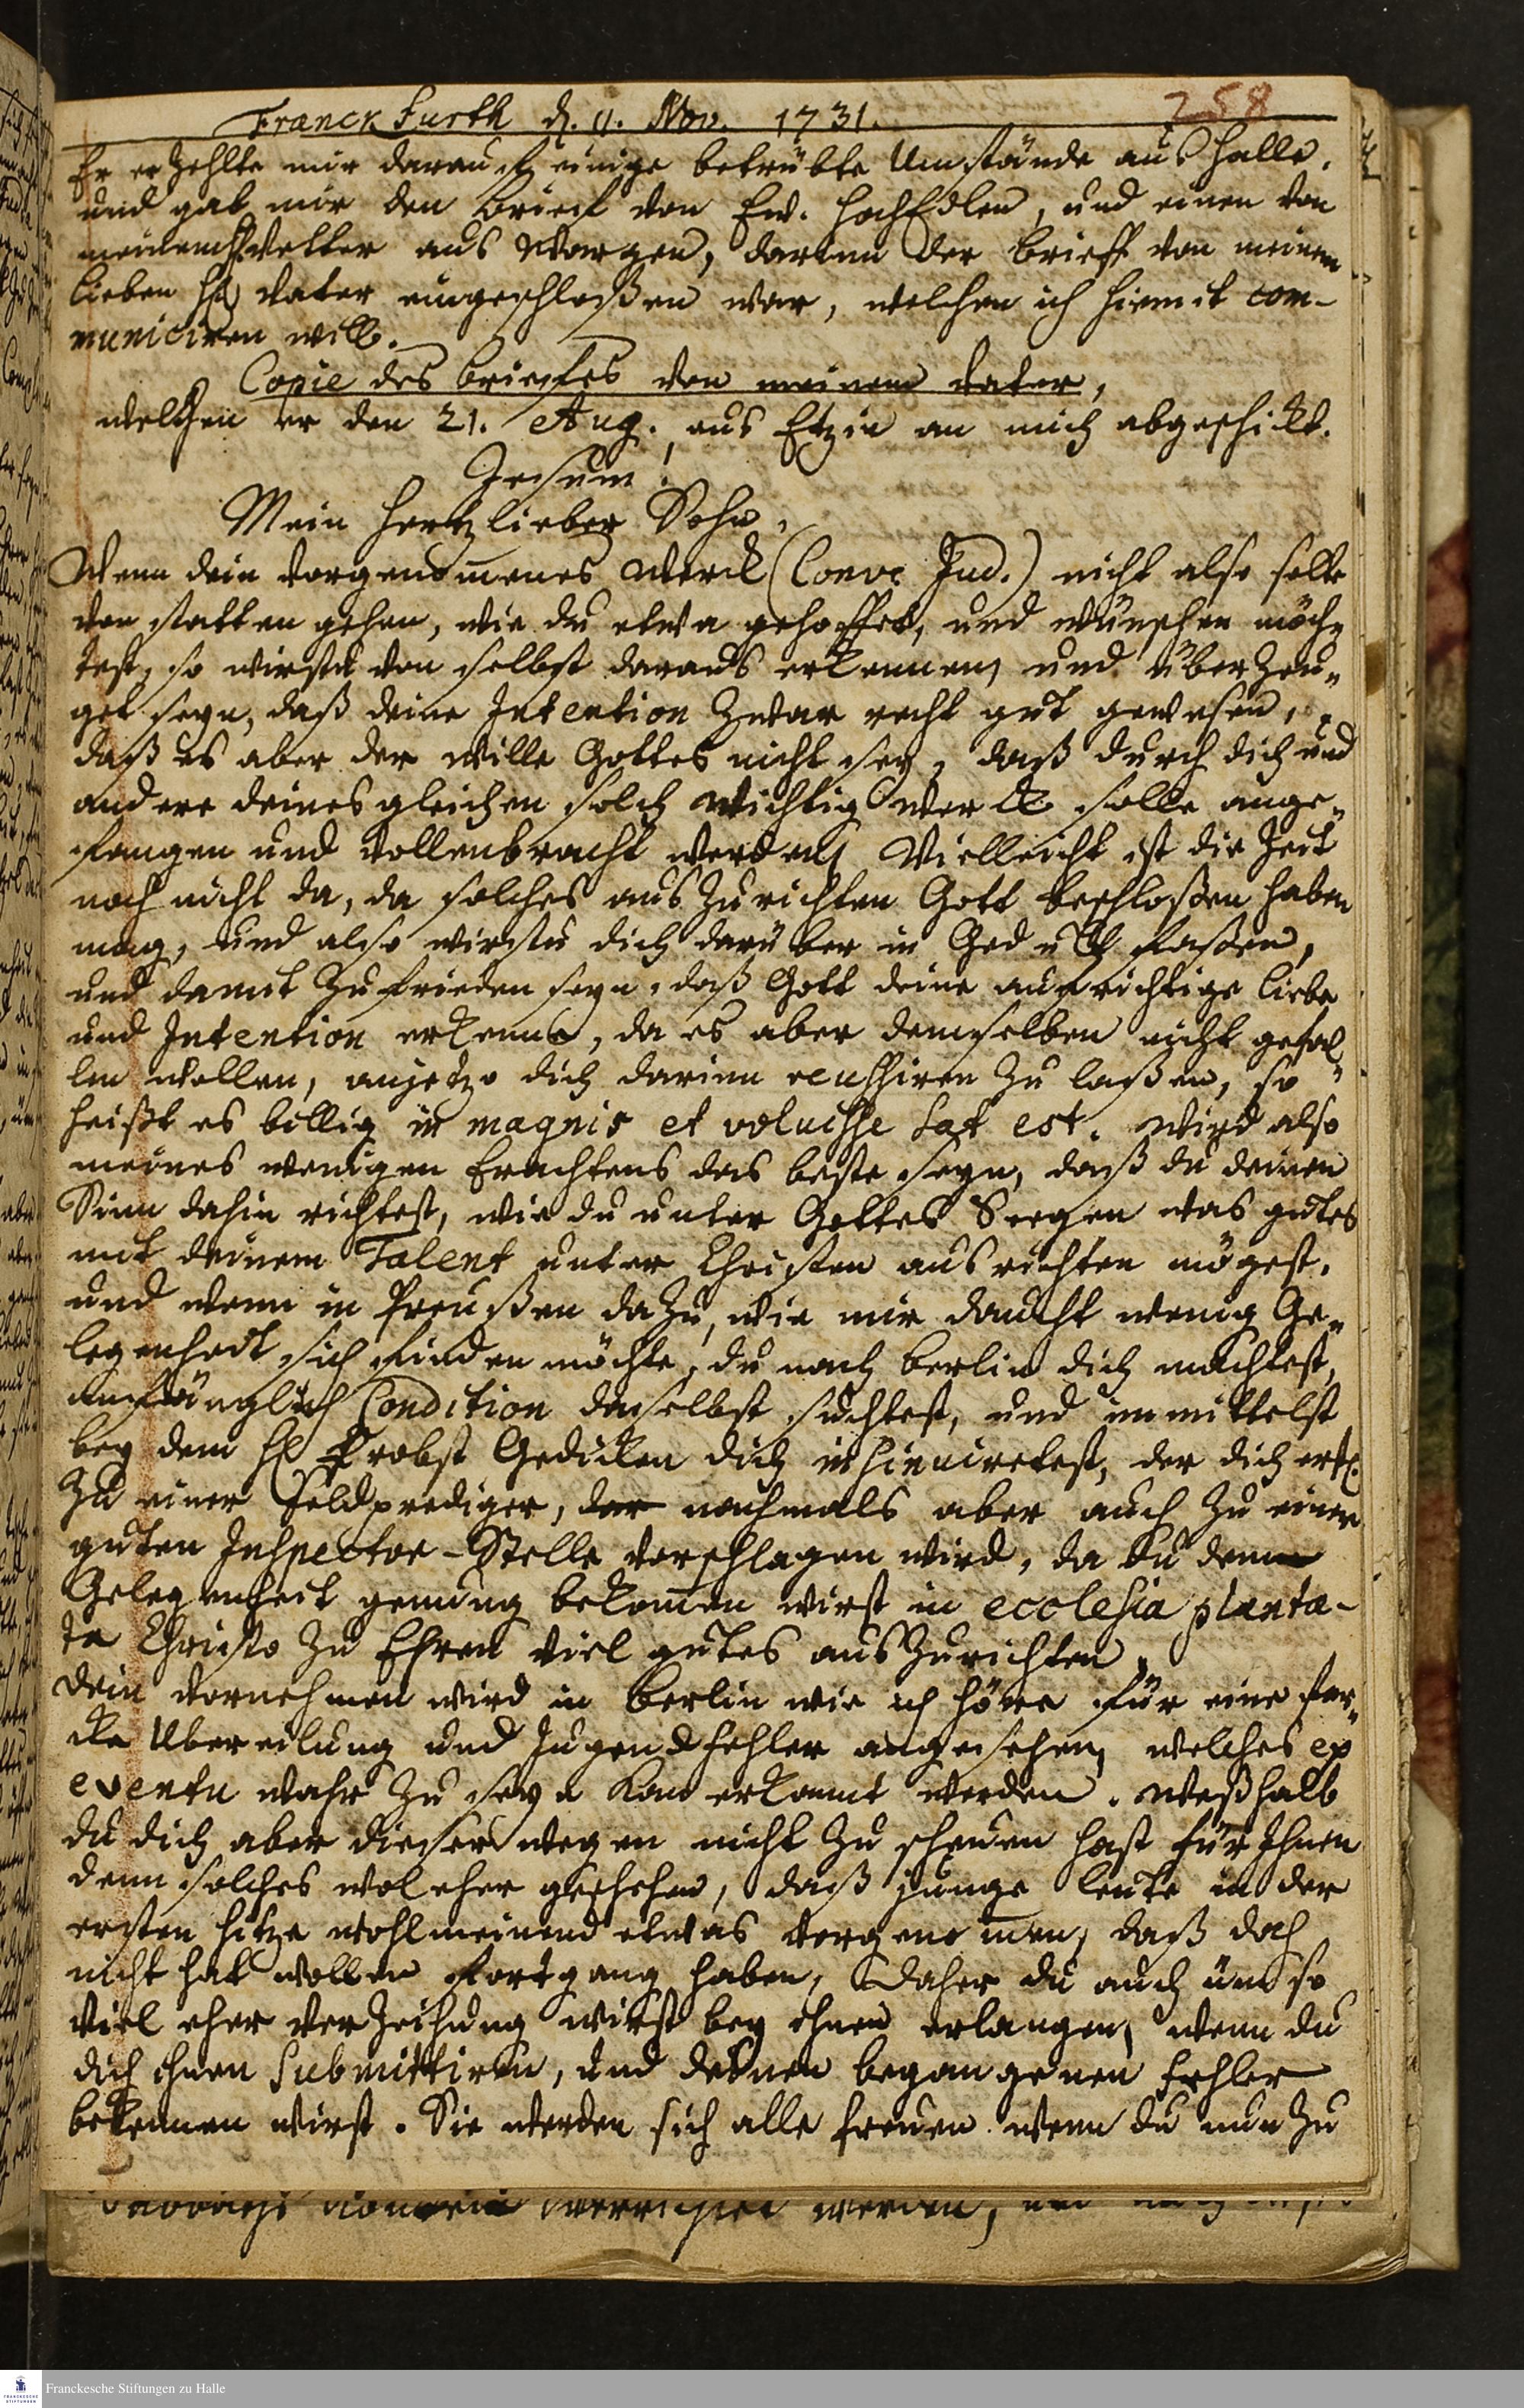 Franckfurth d. 11. Nov. 1731.
258
Er erzehlte mir darauf einige betrübte Umstände aus Halle,
und gab mir den Brieff von Ew. HochEdlen, und einen von
meinem H. Vetter aus Wargen, darinn der Brieff von meinem
lieben H. Vater eingeschloßen war, welchen ich hiemit com-
municiren will.
Copie des Brieffes von meinem Vater,
welchen er den 21. Aug. aus Etzin an mich abgeschikt.
Jesum!
Mein Hertzlieber Sohn,
Wenn dein vorgenommenes Werck (Conv. Jud.) nicht also solte
von statten gehen, wie du etwa gehoffet, und wünschen möch-
test, so wirstu von selbst daraus erkennen, und überzeu-
get seyn, daß deine Intention zwar recht gut gewesen,
daß es aber der Wille Gottes nicht sey, daß durch dich und
andere deines gleichen solch wichtig Werck solle ange-
fangen und vollenbracht werden. Vielleicht ist die Zeit
noch nicht da, da solches auszurichten Gott beschloßen haben
mag, und also wirstu dich darüber in Gedult faßen,
und damit zufrieden seyn, daß Gott deine aufrichtige Liebe
und Intention erkenne, da es aber demselben nicht gefal-
len wollen, anjetzo dich darinn reussiren zu laßen, so
heißt es billig in magnis et voluisse sat est. Wird also
meines wenigen Erachtens das beste seyn, daß du deinen
Sinn dahin richtest, wie du unter Gottes Seegen was gutes
mit deinem Talent unter Christen ausrichten mögest,
und wenn in Preußen dazu, wie mir daucht wenig Ge-
legenheit sich finden möchte, du nach Berlin dich machtest,
anfänglich Condition daselbst suchtest, und immittelst
bey dem H. Probst Gedicken dich insinuiretest, der dich erstl.
zu einer Feldprediger, der nachmals aber auch zu einer
guten Inspector-Stelle vorschlagen wird, da du denn
Gelegenheit genung bekommen wirst in ecclesia planta-
ta Christo zu Ehren viel gutes auszurichten.
Dein Vornehmen wird in Berlin wie ich höre für eine star-
cke Ubereilung und Jugendfehler angesehen, welches ex
eventu wahr zu seyn kan erkannt werden. Weßhalb
du dich aber dieserwegen nicht zu scheuen hast für Ihnen
denn solches wol eher geschehen, daß junge Leute in der
ersten Hitze wohlmeinend etwas vorgenommen, daß doch
nicht hat wollen Fortgang haben, Daher du auch üm so
viel eher Verzeihung wirst bey ihnen erlangen, wenn du
dich ihnen submittiren, und deinen begangenen Fehler
bekennen wirst. Sie werden sich alle freuen wenn du nun zu
werden,
Franckesche Stiftungen zu Halle